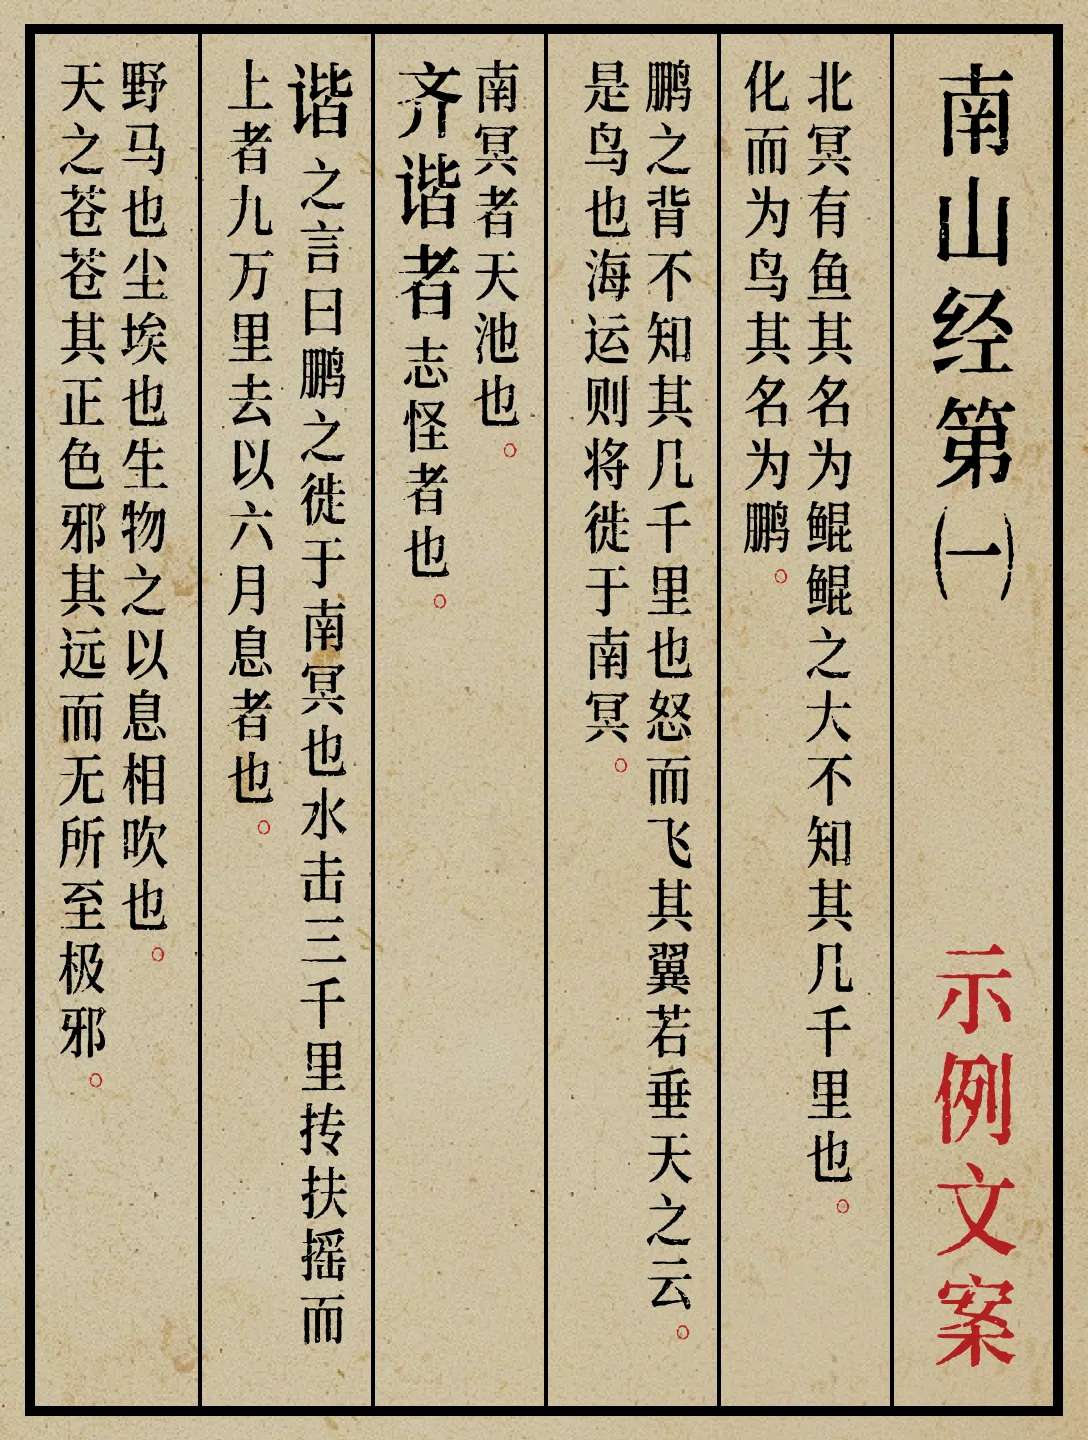 南山经第㈠
示例文案
北冥有鱼其名为鲲鲲之大不知其几千里也。
化而为鸟其名为鹏。
鹏之背不知其几千里也怒而飞其翼若垂天之云。
是鸟也海运则将徙于南冥。
南冥者天池也。
齐谐者志怪者也。
谐之言曰鹏之徙于南冥也水击三千里抟扶摇而
上者九万里去以六月息者也。
野马也尘埃也生物之以息相吹也。
天之苍苍其正色邪其远而无所至极邪。